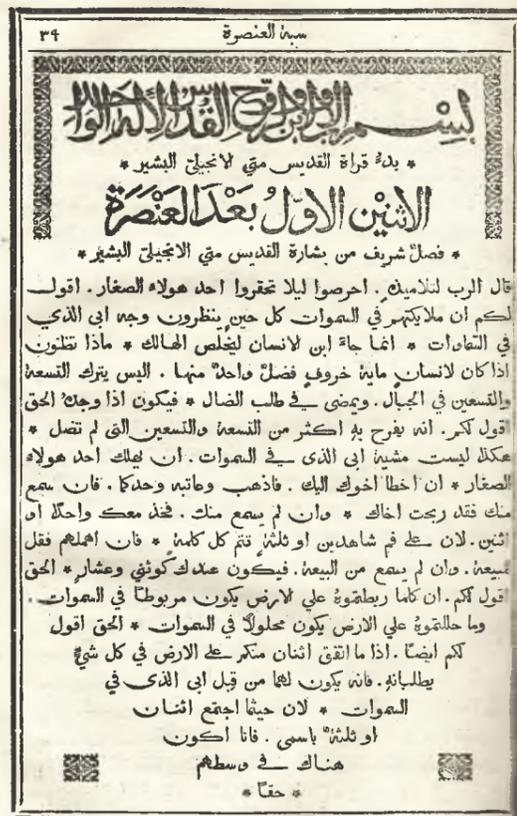 سبة العنصرة ٣٩
بسم الاب والابن والروح القدس الاله الواحد
* بدء قراة القديس متي لانجيلي البشير *
الاثنين الاول بعد العنصرة
* فصل شريف من بشارة القديس متي الانجيلي البشير *
قال الرب لتلاميذه . احرصوا ليلا تحقروا احد هولاء الصغار . اقول
لكم ان ملايكتهم في السموات كل حين ينظرون وجه ابي الذي
في السماوات * انما جاء ابن لانسان ليخلص الهالك * ماذا تظنون
اذا كان لانسان ماية خروف فضل واحد منها . اليس يترك التسعة
والتسعين في الجبال . ويمضي في طلب الضال * فيكون اذا وجده الحق
اقول لكم . انه يفرح به اكثر من التسعة والتسعين التي لم تضل *
هكذا ليست مشية ابي الذي في السموات . ان يهلك احد هولاء
الصغار * ان اخطا اخوك اليك . فاذهب وعاتبه وحدكما . فان سمع
منك فقد ربحت اخاك * وان لم يسمع منك . فخذ معك واحدا او
اثنين . لان علي فم شاهدين او ثلثة تتم كل كلمة * فان اهملهم فقل
للبيعة . وان لم يسمع من البيعة . فيكون عندك كوثني وعشار * الحق
اقول لكم . ان كلما ربطتموه علي لارض يكون مربوطا في السموات .
وما حللتموه علي الارض يكون محلولا في السموات * الحق اقول
لكم ايضا . اذا ما اتفق اثنان منكم علي الارض في كل شيء
يطلبانه . فانه يكون لهما من قبل ابي الذي في
السموات * لان حيثما اجتمع اثنان
او ثلثة باسمي . فانا اكون
هناك في وسطهم
* حقا *